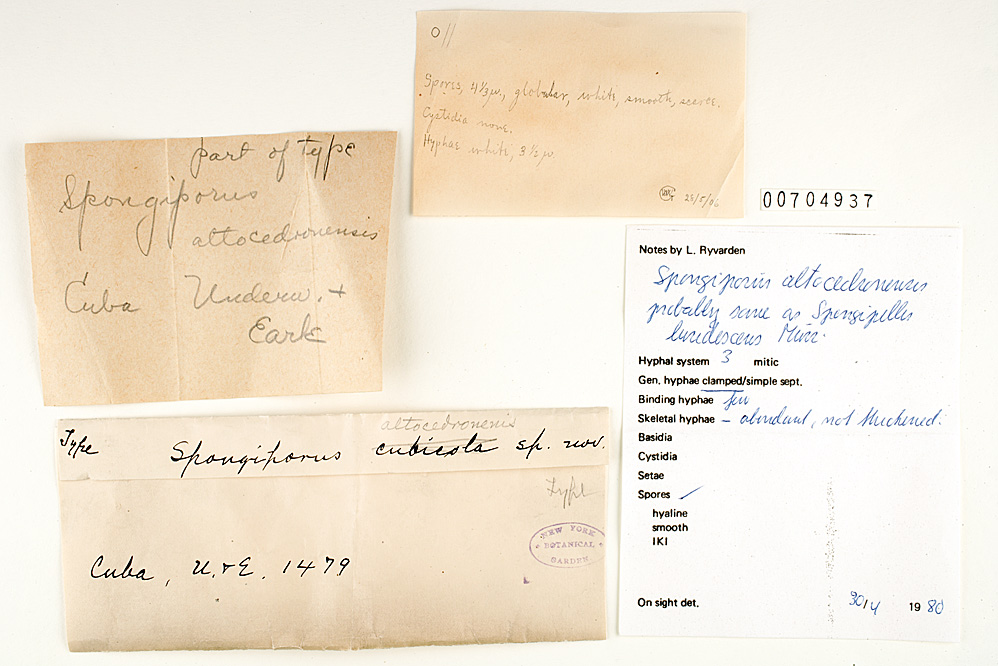 O//
Spores, 4 1/3 µ., globular, white, smooth, scarce.
Cystidia none.
Hyphae white, 3 1/2 µ.
25/5/06
part of type
Spongiporus
altocedronensis
Cuba Underw. +
Earle
00704937
Type Spongiporus cubicola sp. nov.
altocedronenis
Type
NEW YORK
BOTANICAL
GARDEN
Cuba, U. & E. 1479
Notes by L. Ryvarden
Spongiporus altocedronensis
probably same as Spongipellis
luridescens Murr.
Hyphal system 3 mitic
Gen. hyphae clamped/simple sept.
Binding hyphae few
Skeletal hyphae – abundant, not thickened.
Basidia
Cystidia
Setae
Spores ✓
hyaline
smooth
IKI
On sight det. 30/4 1980